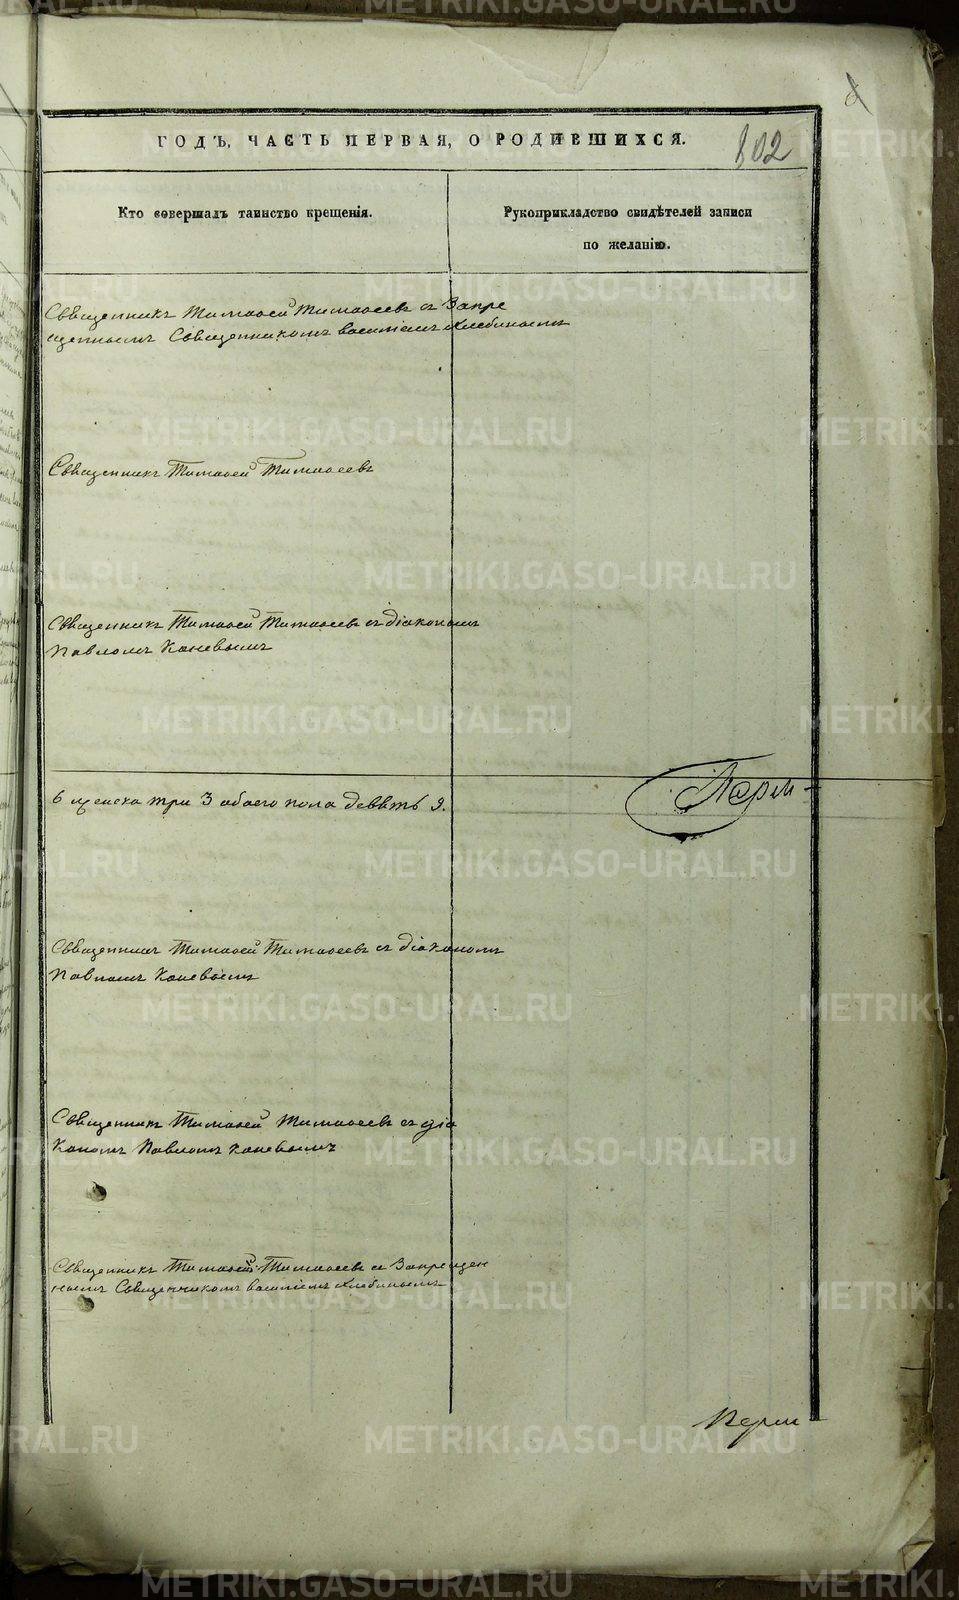 ГОДЪ, ЧАСТЬ ПЕРВАЯ, О РОДИВШИХСЯ.
802
Кто совершалъ таинство крещенія.
Рукоприкладство свидѣтелей записи
по желанію.
Священникъ Тимоѳей Тимоѳеевъ съ Запре
щеннымъ Священникомъ Василіемъ Хлебинымъ
Священникъ Тимоѳей Тимоѳеевъ
Священникъ Тимоѳей Тимоѳеевъ съ діакономъ
Павломъ Каневымъ
6 женска три 3 обоего пола девять 9.
Перм-
Священникъ Тимоѳей Тимоѳеевъ съ діакономъ
Павломъ Каневымъ
Священникъ Тимоѳей Тимоѳеевъ съ діа
кономъ Павломъ Каневымъ
Священникъ Тимоѳей Тимоѳеевъ съ Запрещен
нымъ Священникомъ Василіемъ Хлебинымъ
Перм
METRIKI.GASO-URAL.RU